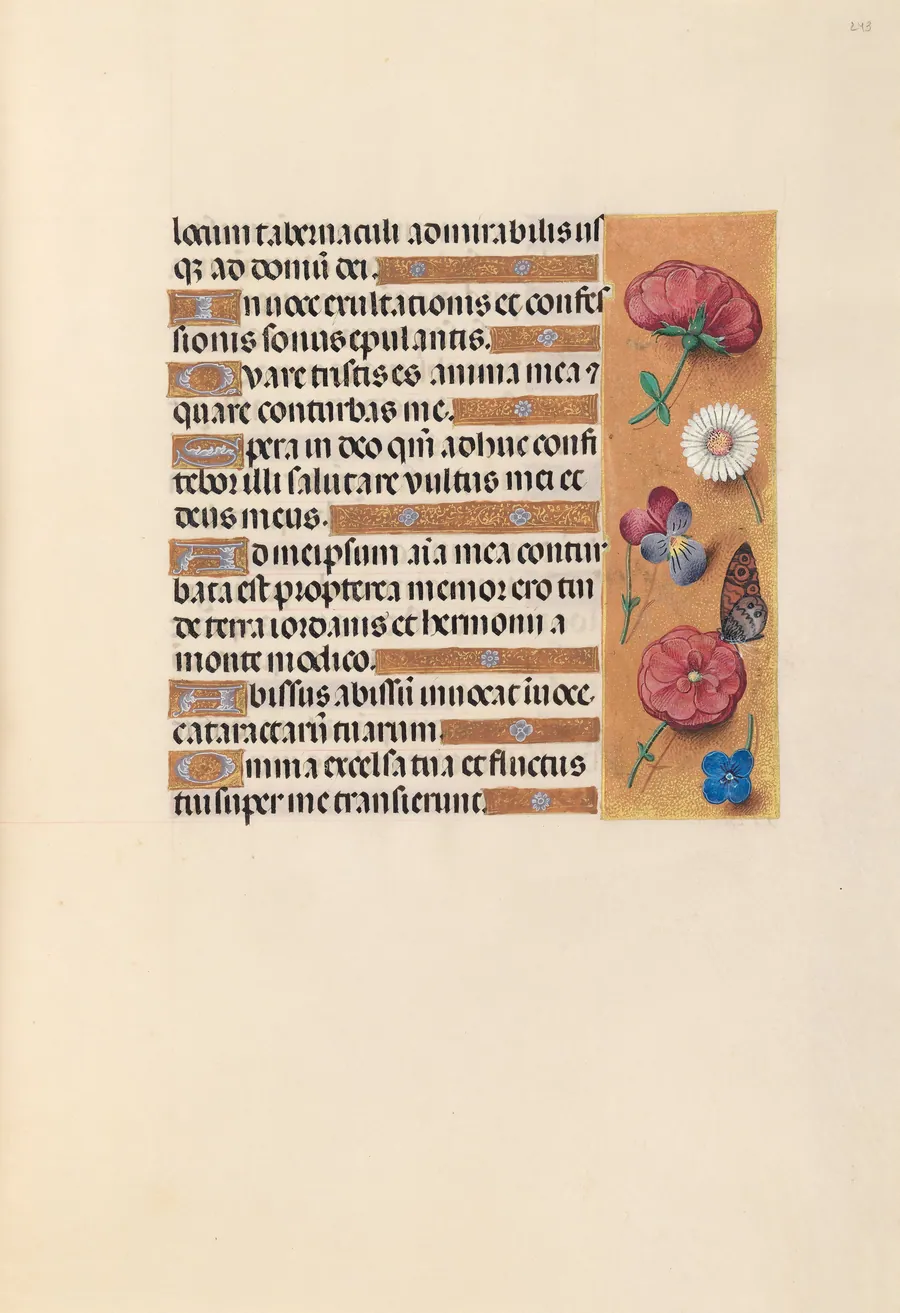 243
locum tabernaculi admirabilis us
qꝫ ad domū dei.
In uoce exultationis et confes
sionis sonus epulantis.
Quare tristis es anima mea ⁊
quare conturbas me.
Spera in deo qm̄ adhuc confi
tebor illi salutare vultus mei et
deus meus.
Ad meipsum aīa mea contur
bata est propterea memor ero tui
de terra iordanis et hermonii a
monte modico.
Abissus abissū inuocat in uoce
cataractarū tuarum.
Omnia excelsa tua et fluctus
tui super me transierunt.